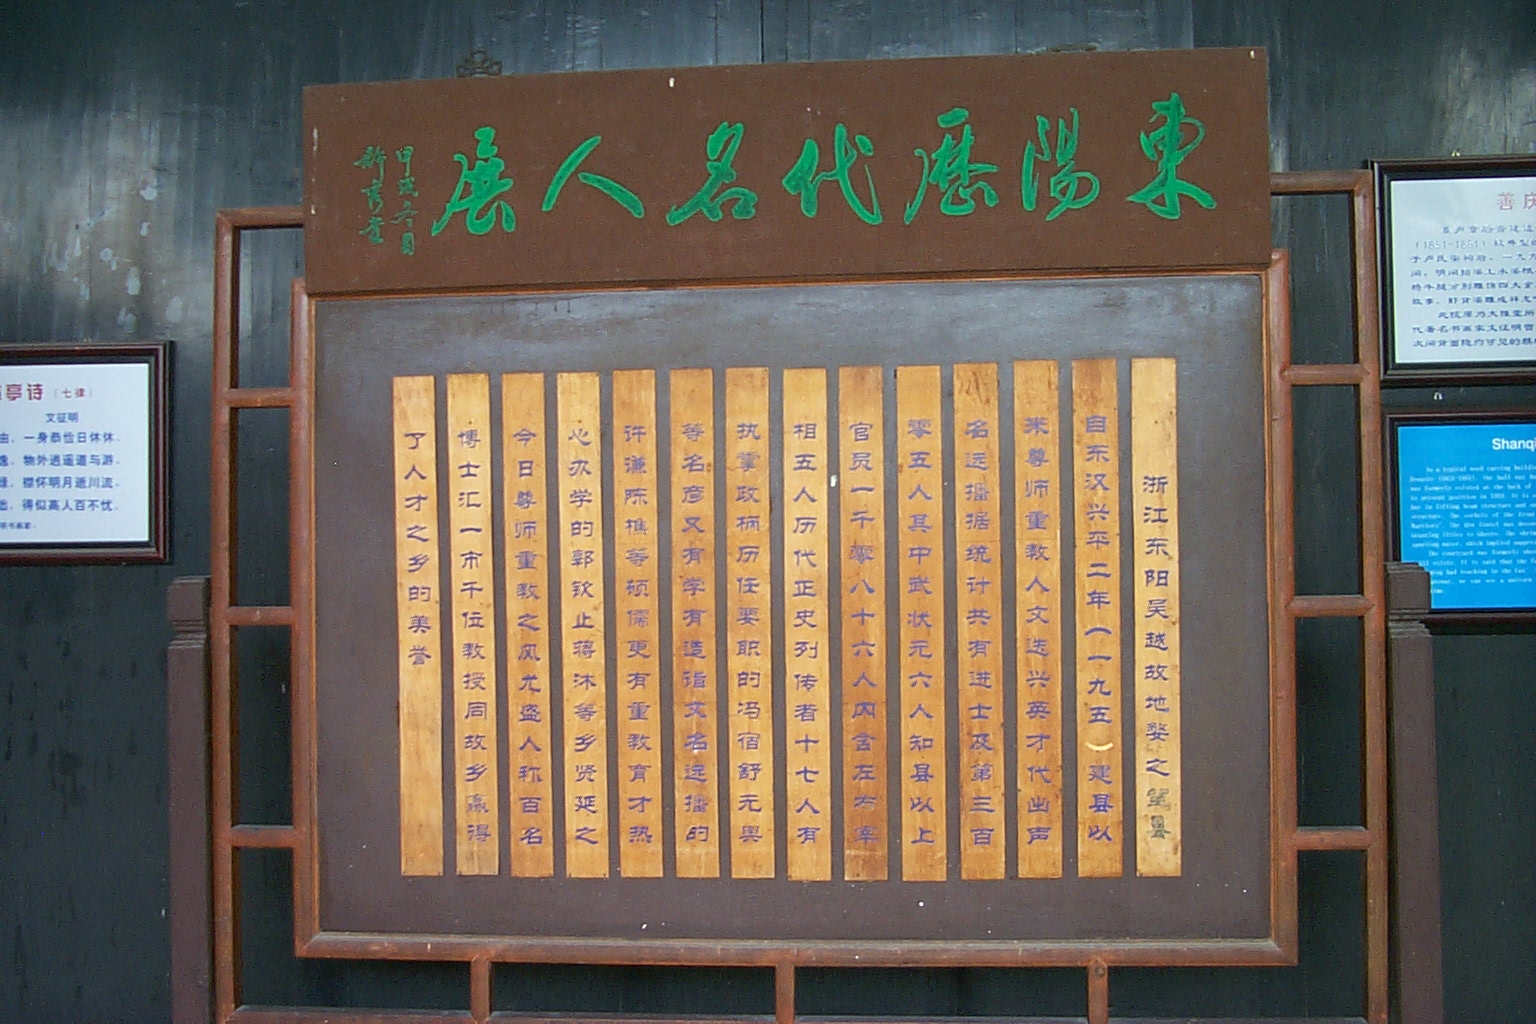 東陽歷代名人展
甲戌冬月
浙江东阳吴越故地婺之望县
自东汉兴平二年(一九五)建县以
来尊师重教人文迭兴英才代出声
名远播据统计共有进士及第三百
零五人其中武状元六人知县以上
官员一千零八十六人内含左右宰
相五人历代正史列传者十七人有
执掌政柄历任要职的冯宿舒元舆
等名彦又有学有造诣文名远播的
许谦陈樵等硕儒更有重教育才热
心办学的郭钦止蒋沐等乡贤延之
今日尊师重教之风尤盛人称百名
博士汇一市千位教授同故乡赢得
了人才之乡的美誉
亭诗(七律)
文征明
由,一身恭俭日休休。
逸,物外逍遥道与游。
襟怀明月逝川流。
出,得似高人百不忧。
善庆
(1851-1861)
于卢氏宗祠后,一九九
故事,
代著名书画家文征明曾
次间背面隐约可见的棋
Shanqi
As a typical wood carving build
was formerly existed at the back of
The courtyard was formerly